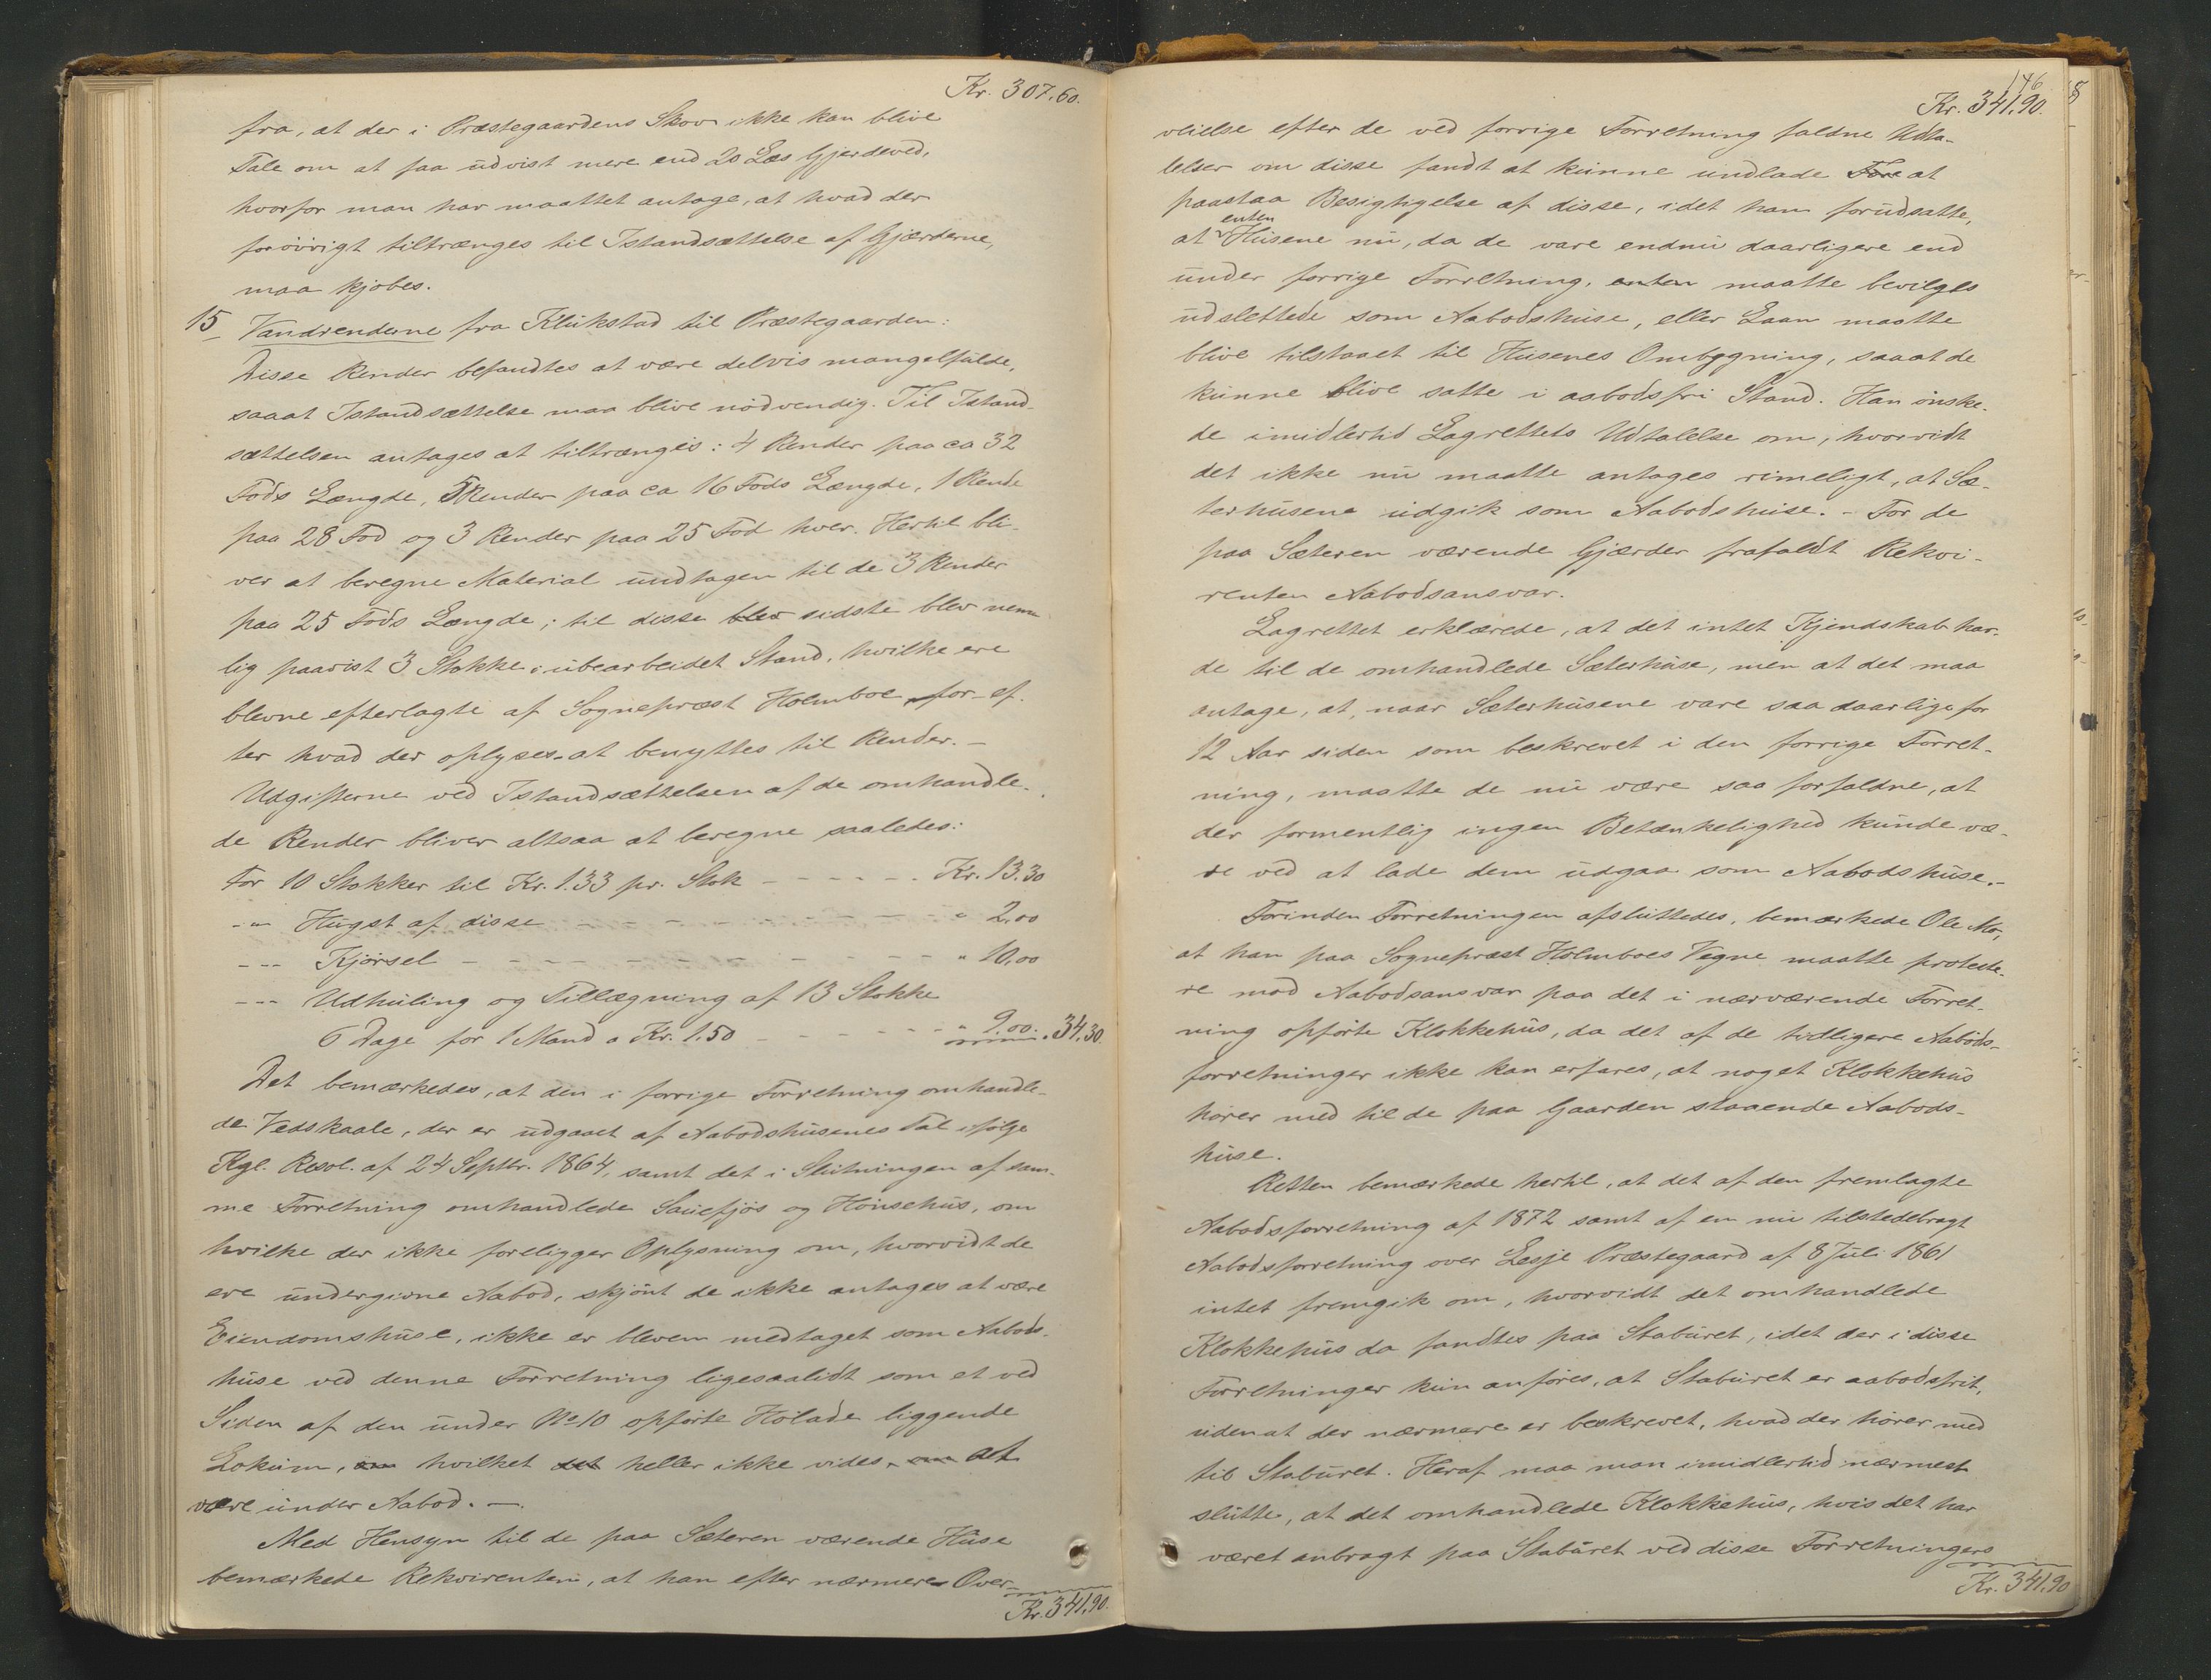 Kr. 307.60.
fra, at der i Præstegaardens Skov ikke kan blive
Tale om at faa udvist mere end 20 Læs Gjerdeved,
hvorfor man har maattet antage, at hvad der
forövrigt tiltrænges til Istandsættelse af Gjærderne,
maa kjöbes.
15 Vandrenderne fra Klukstad til Præstegaarden:
Disse Render befandtes at være delvis mangelfulde,
saaat Istandsættelse maa blive nödvendig. Til Istand-
sættelsen antages at tiltrænges: 4 Render paa ca 32
Fods Længde, 5 Render paa ca 16 Fods Længde, 1 Rende
paa 28 Fod og 3 Render paa 25 Fod hver. Hertil bli-
ver at beregne Material undtagen til de 3 Render
paa 25 Fods Længde; til disse blev sidste blev nem-
lig paavist 3 Stokke i ubearbeidet Stand, hvilke ere
blevne efterlagte af Sognepræst Holmboe for ef-
ter hvad der oplyses at benyttes til Render. –
Udgifterne ved Istandsættelsen af de omhandle-
de Render bliver altsaa at beregne saaledes:
For 10 Stokker til Kr. 1.33 pr. Stok - - - - - - Kr. 13.30
-"- Hugst af disse - - - - - - - - - - " 2.00
--- Kjörsel - - - - - - - - - - - - " 10.00
--- Udhuling og Tillægning af 13 Stokke
6 Dage for 1 Mand a Kr. 1.50 - - - - - - " 9.00. " 34.30.
Det bemærkedes, at den i forrige Forretning omhandle-
de Vedskaale, der er udgaaet af Aabodshusenes Tal ifölge
Kgl. Resol. af 24 Septbr. 1864, samt det i Slutningen af sam-
me Forretning omhandlede Sauefjös og Hönsehus, om
hvilke der ikke foreligger Oplysning om, hvorvidt de
ere undergivne Aabod, skjönt de ikke antages at være
Eiendomshuse, ikke er bleven medtaget som Aabods-
huse ved denne Forretning ligesaalidt som et ved
Siden af den under No 10 opförte Hölade liggende
Lokum, om hvilket det heller ikke vides, om at
være under Aabod. –.
Med Hensyn til de paa Sæteren værende Huse
bemærkede Rekvirenten, at han efter nærmere Over-
Kr. 341.90.
146
Kr. 341.90.
veielse efter de ved forrige Forretning faldne Udta-
lelser om disse fandt at kunne undlade Fore at
paastaa Besigtigelse af disse, idet han forudsatte,
enten
at Husene nu, da de vare endnu daarligere end
under forrige Forretning, enten maatte bevilges
udslettede som Aabodshuse, eller Laan maatte
blive tilstaaet til Husenes Ombygning, saaat de
kunne blive satte i aabodsfri Stand. Han önske-
de imidlertid Lagrettets Udtalelse om, hvorvidt
det ikke nu maatte antages rimeligt, at Sæ-
terhusene udgik som Aabodshuse. - For de
paa Sæteren værende Gjærder frafaldt Rekvi-
renten Aabodsansvar.
Lagrettet erklærede, at det intet Kjendskab hav-
de til de omhandlede Sæterhuse, men at det maa
antage, at, naar Sæterhusene vare saa daarlige for
12 Aar siden som beskrevet i den forrige Forret-
ning, maatte de nu være saa forfaldne, at
der formentlig ingen Betænkelighed kunde væ-
re ved at lade dem udgaa som Aabodshuse. –
Forinden Forretningen afsluttedes, bemærkede Ole Mo,
at han paa Sognepræst Holmboes Vegne maatte proteste-
re mod Aabodsansvar paa det i nærværende Forret-
ning opförte Klokkehus, da det af de tidligere Aabods-
forretninger ikke kan erfares, at noget Klokkehus
hörer med til de paa Gaarden staaende Aabods-
huse.
Retten bemærkede hertil, at det af den fremlagte
Aabodsforretning af 1872 samt af en nu tilstedebragt
Aabodsforretning over Lesje Præstegaard af 8 Juli 1861
intet fremgik om, hvorvidt det omhandlede
Klokkehus da fandtes paa Staburet, idet der i disse
Forretninger kun anföres, at Staburet er aabodsfrit,
uden at der nærmere er beskrevet, hvad der hörer med
til Staburet. Heraf maa man imidlertid nærmest
slutte, at det omhandlede Klokkehus, hvis det har
været anbragt paa Staburet ved disse Forretningers
Kr. 341.90